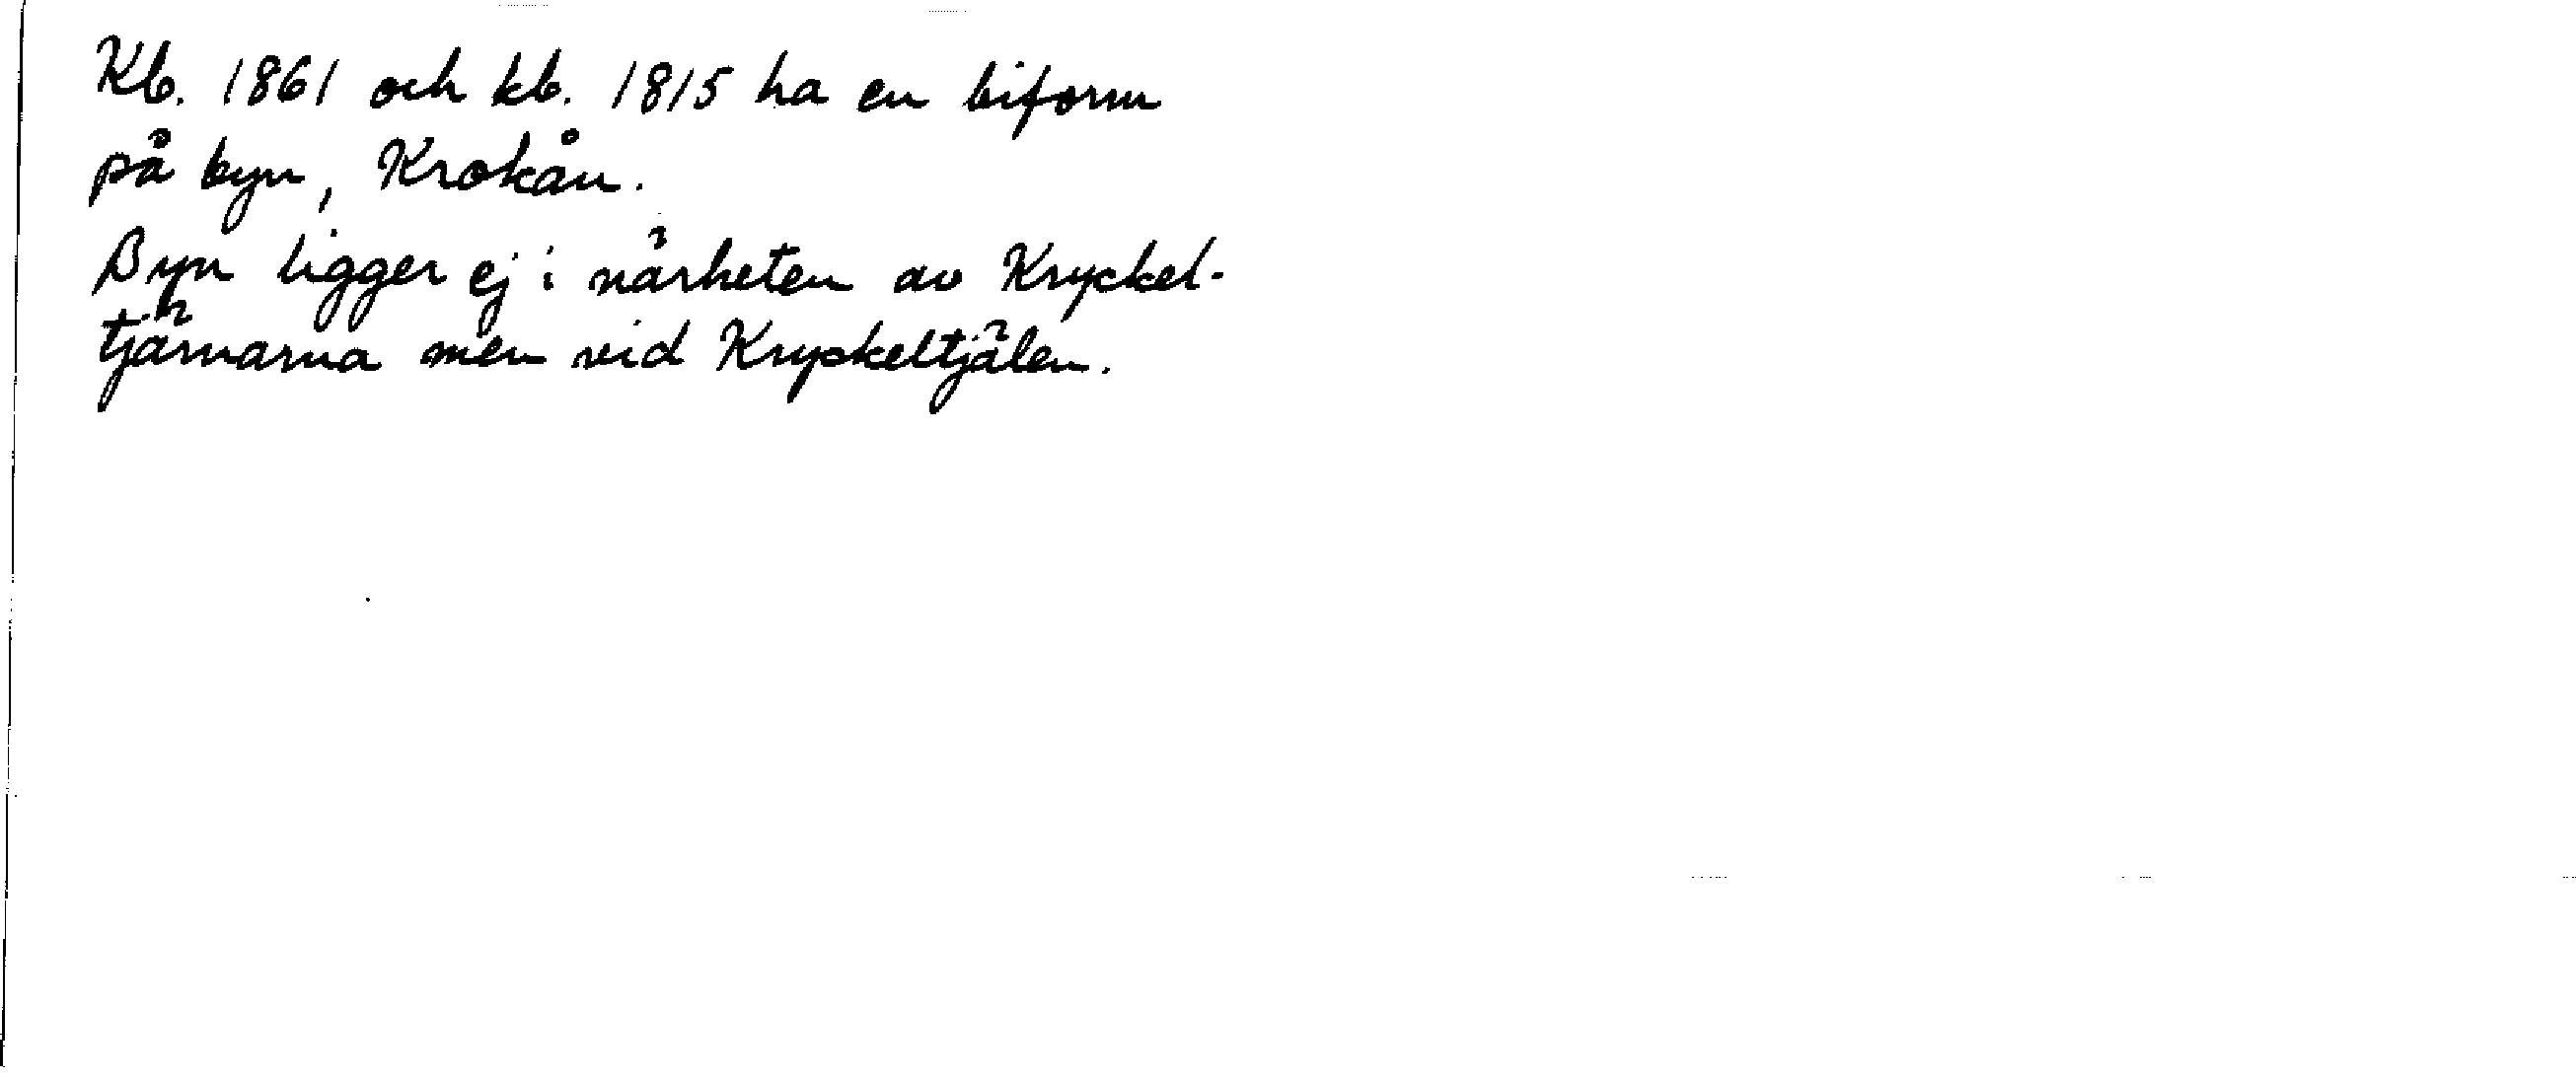 Kb. 1861 och kb. 1815 ha en biform
på byn, Krokån.
Byn ligger ej i närheten av Kryckel-
tjärnarna men vid Kryckeltjälen.